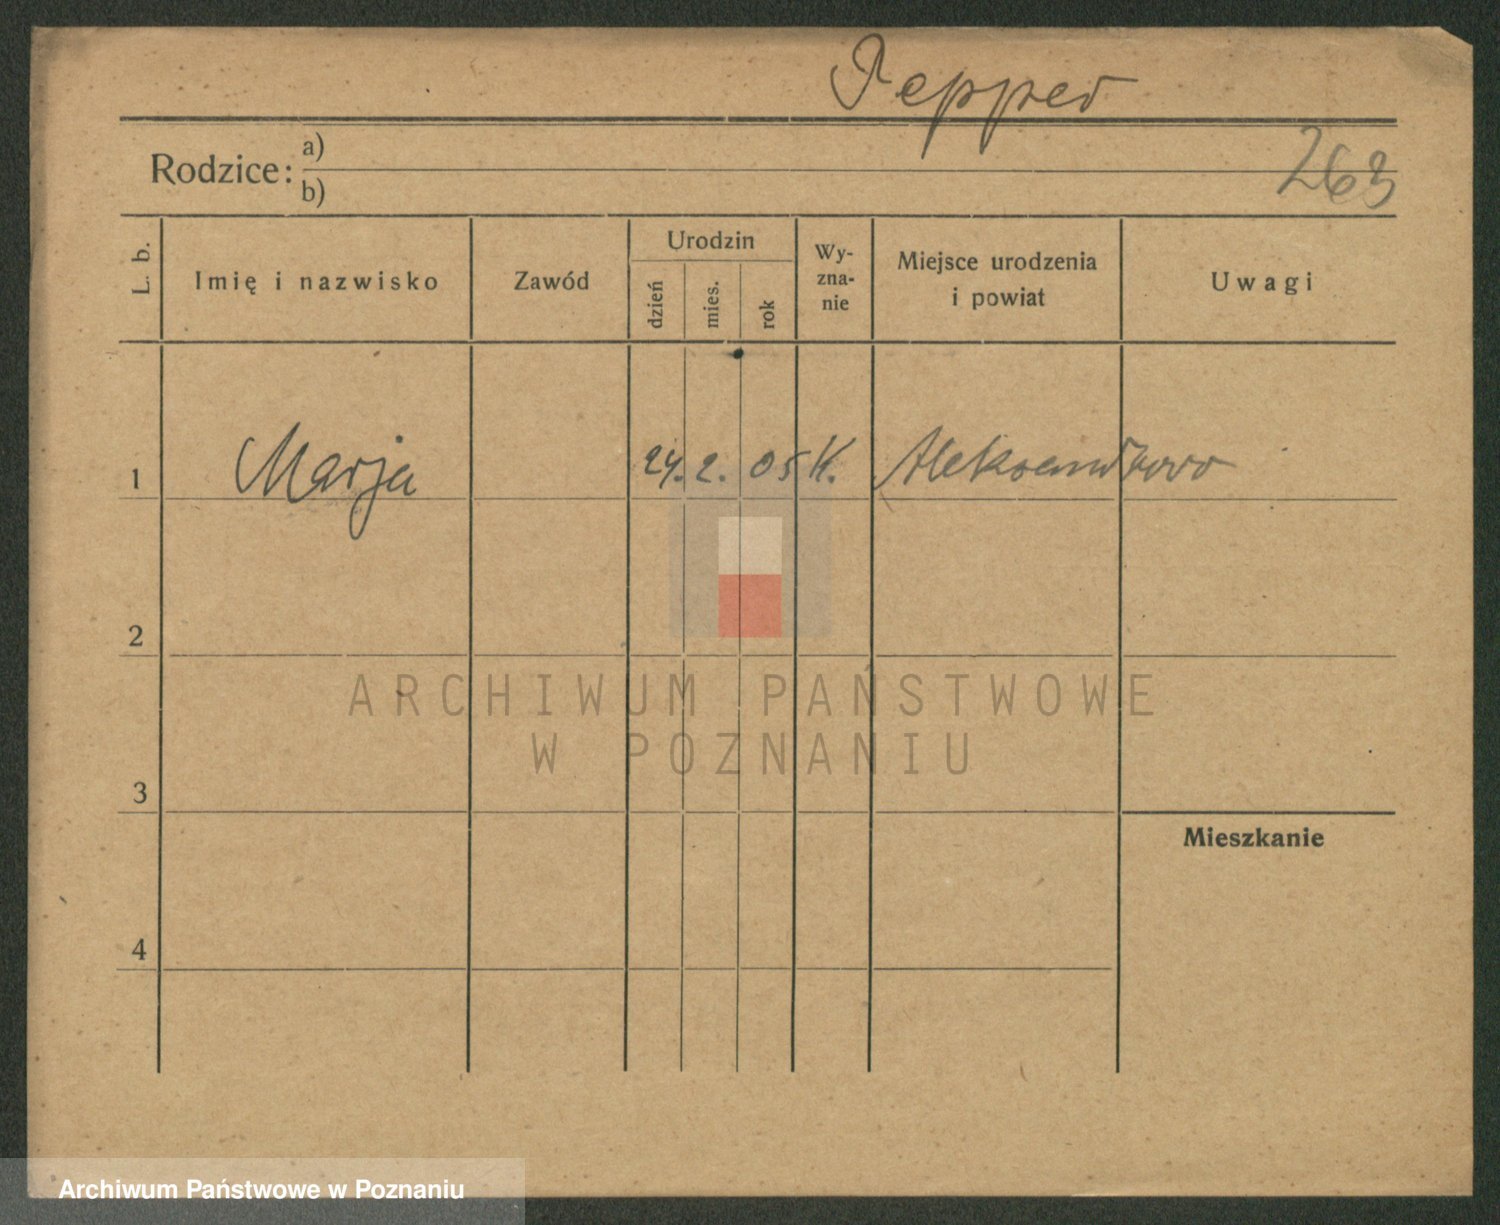 Pepper
Rodzice: a)
b)
263
L. b.
Imię i nazwisko
Zawód
Urodzin
dzień
mies.
rok
Wy-
zna-
nie
Miejsce urodzenia
i powiat
Uwagi
1 Marja 24. 2. 05 K. Aleksandrowo
2
3
Mieszkanie
4
ARCHIWUM PAŃSTWOWE
W POZNANIU
Archiwum Państwowe w Poznaniu